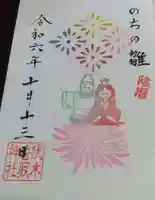 のちの雛
陰暦
令和六年十月十三日